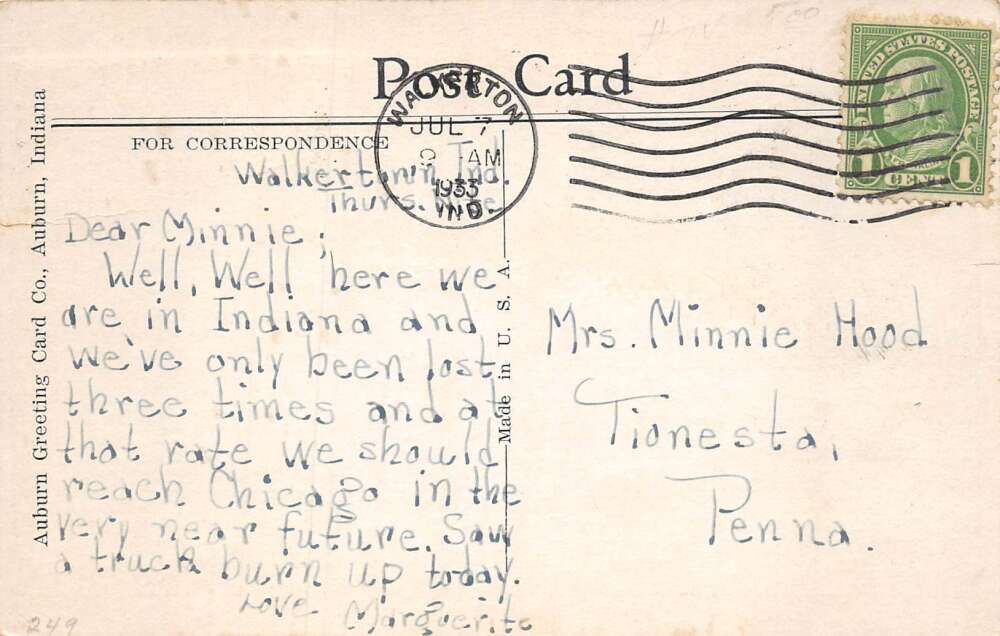 Post Card
WALKERTON
JUL 7
9 AM
1933
IND.
UNITED STATES POSTAGE
1 CENT 1
FOR CORRESPONDENCE
Walkertown Ind.
Thurs. Nite
Dear Minnie;
Well, Well here we
are in Indiana and
we've only been lost
three times and at
that rate we should
reach Chicago in the
very near future. Saw
a truck burn up today.
Love
Marguerite
Mrs. Minnie Hood
Tionesta,
Penna.
Auburn Greeting Card Co., Auburn, Indiana
Made in U. S. A.
249